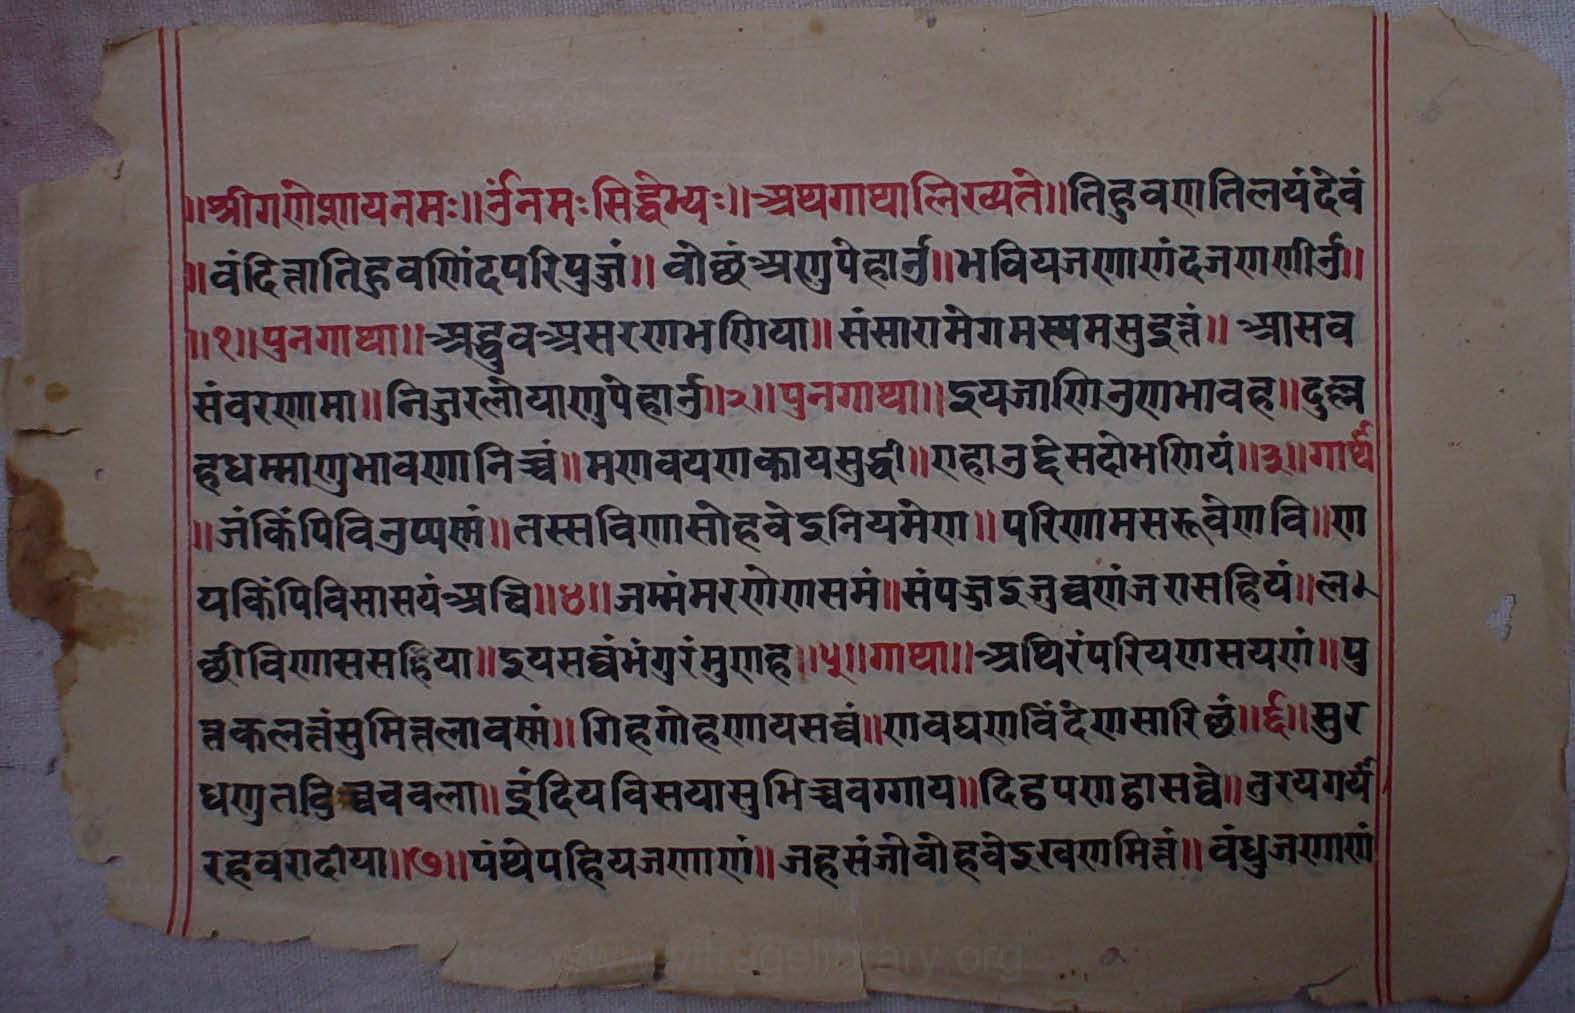 ॥श्रीगणेशायनमः॥उंनमःसिद्धेभ्यः॥अथगाथालिख्यते॥तिहुवणतिलयंदेवं
॥वंदित्तातिहुवणिंदपरिपुज्जं॥वोछंअणुपेहाउ॥भवियजणाणंदजणणीउ॥
॥१॥पुनगाथा॥अद्धुवअसरणभणिया॥संसारामेगमस्यमसुइत्तं॥आसव
संवरणामा॥निज्जरलोयाणुपेहाउ॥२॥पुनगाथा॥इयजाणिउणभावह॥दुल्ल
हधम्माणुभावणानिच्चं॥मणवयणकायसुद्धी॥एहाउद्देसदोभणियं॥३॥गाथै
॥जंकिंपिविउप्पसं॥तस्सविणासोहवेइनियमेण॥परिणामसरूवेणवि॥ण
यकिंपिविसासयंअच्चि॥४॥जम्मंमरणेणसमं॥संपज्जइजुव्वणंजरासहियं॥ल
छीविणाससहिया॥इयसव्वंभंगुरंमुणह॥५॥गाथा॥अथिरंपरियणसयणं॥पु
त्तकलत्तंसुमित्तलावसं॥गिहगोहणायसव्वं॥णवघणविंदेणसारिछं॥६॥सुर
धणुतडिच्चचवला॥इंदियविसयासुभिच्चवग्गाय॥दिट्ठपणट्ठासव्वे॥तुरयगयै
रहवरादीया॥७॥पंथेपहियजणाणं॥जहसंजोवोहवेइखणमित्तं॥वंधुजणाणं